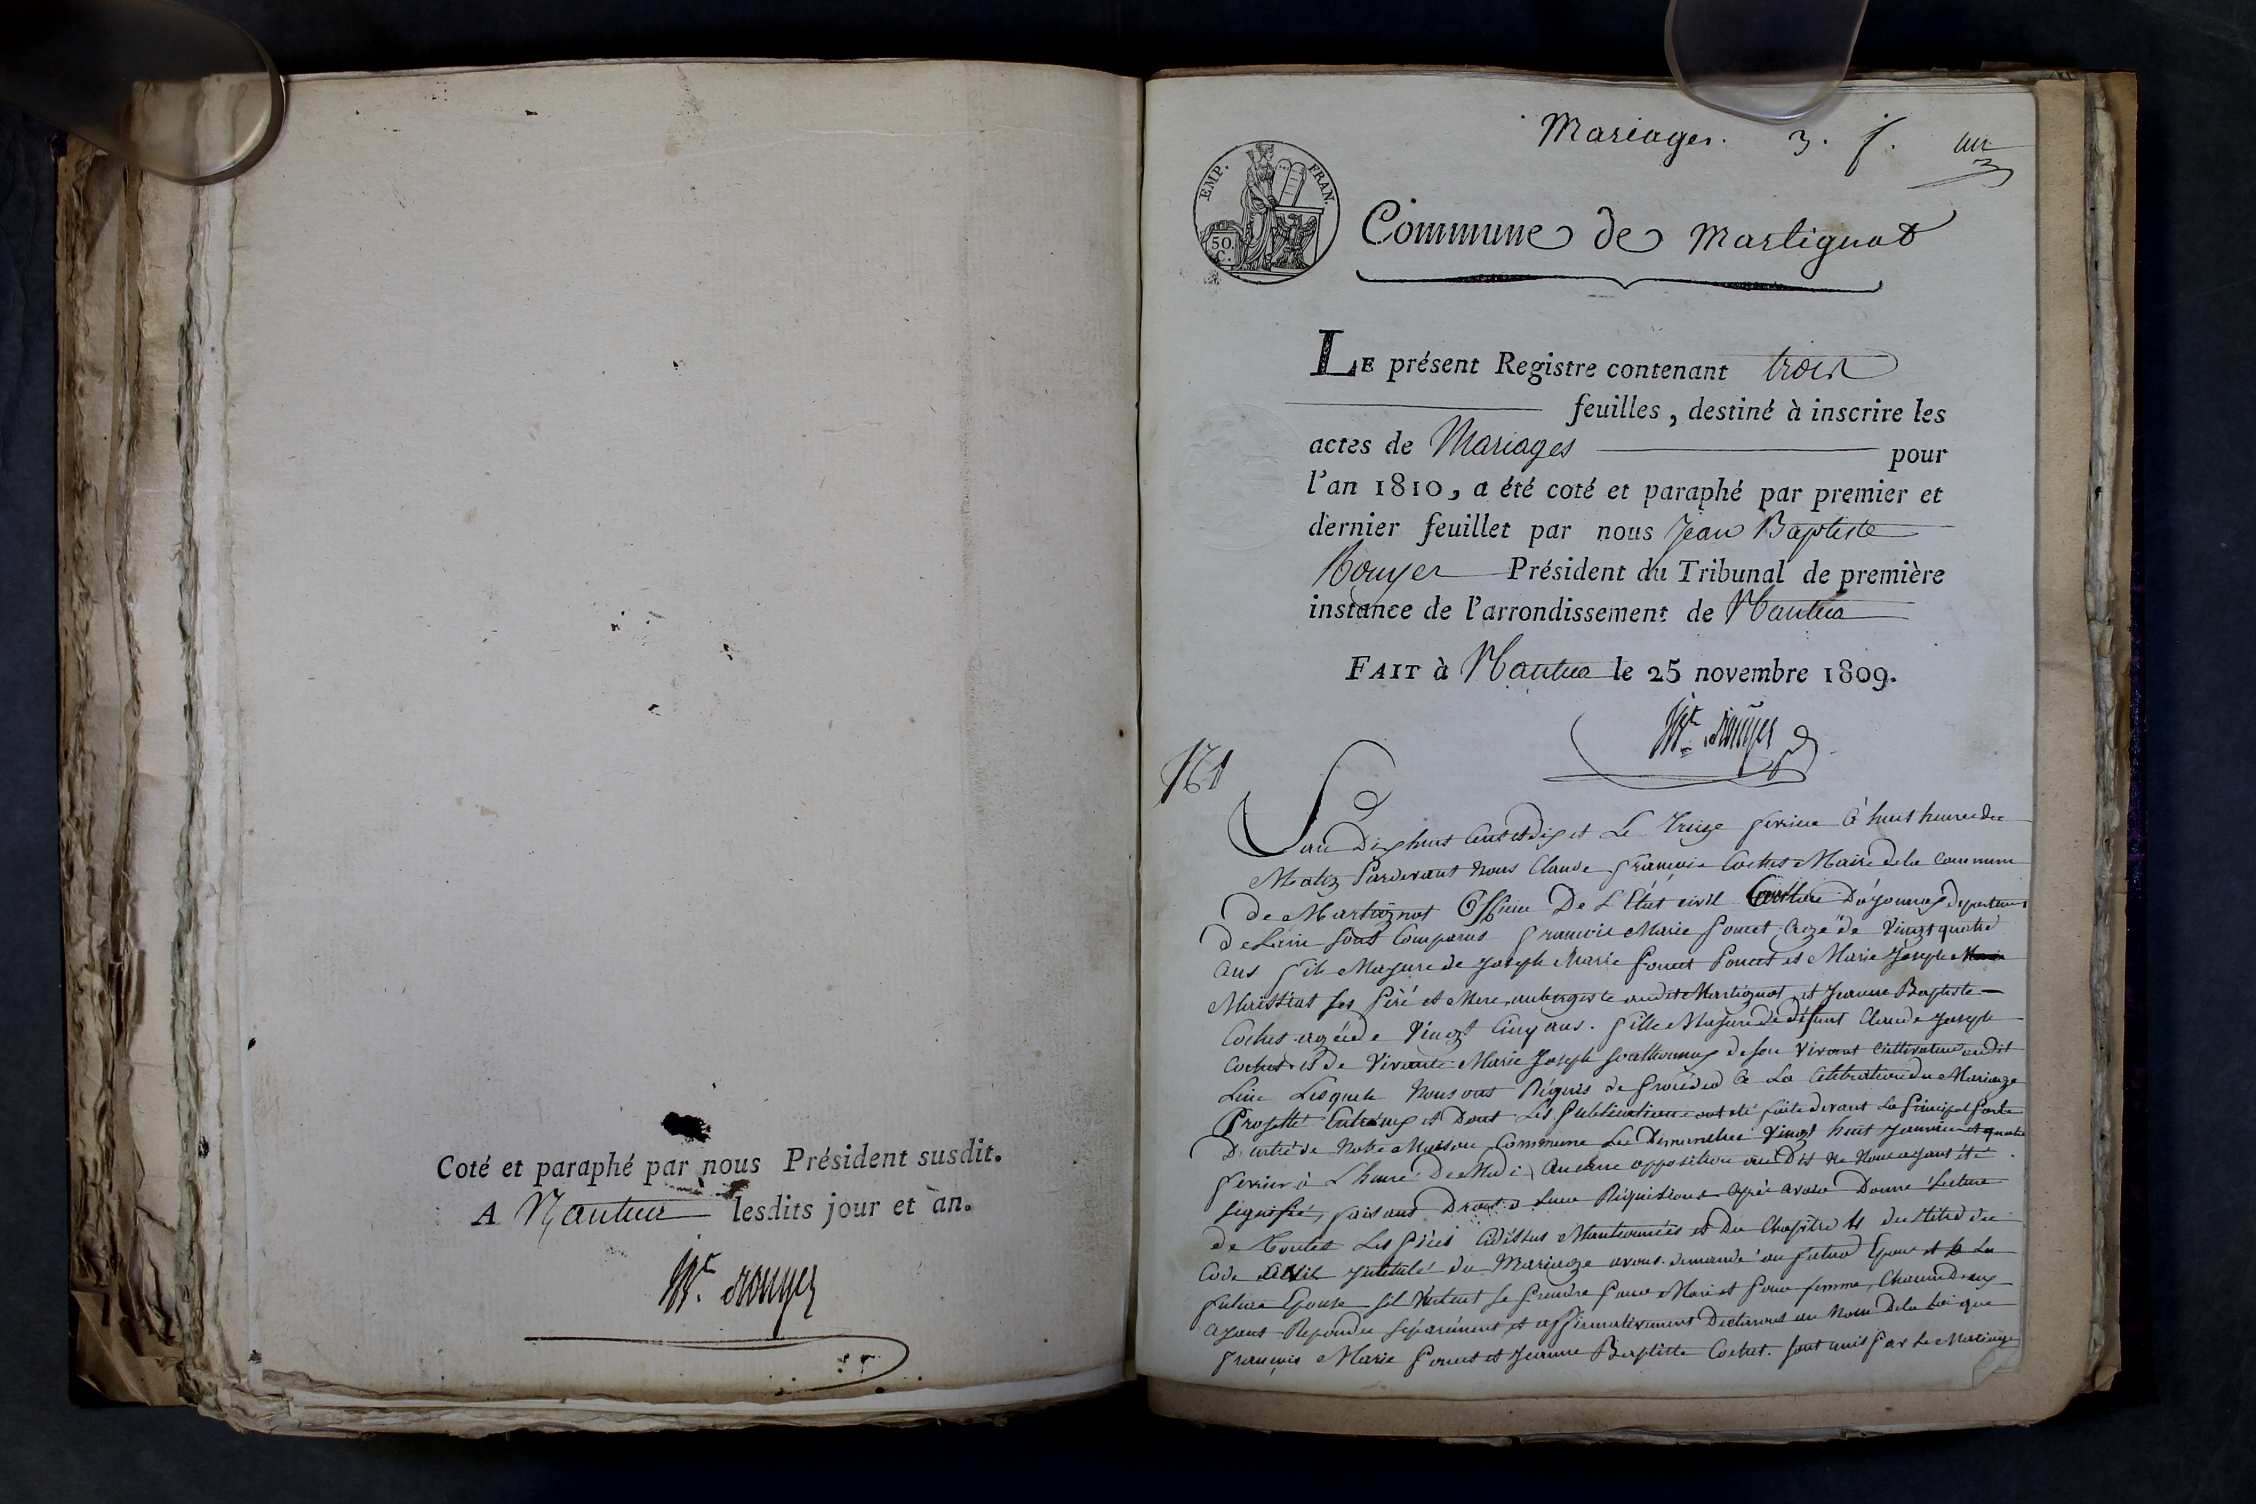 Coté et paraphé par nous Président susdit.
A Nantua lesdits jour et an.
Mariages. 3. f. un
EMP. FRAN.
50.
C.
Commune de Martignat
LE présent Registre contenant trois
feuilles, destiné à inscrire les
actes de Mariages pour
l'an 1810, a été coté et paraphé par premier et
dernier feuillet par nous Jean Baptiste
Rouyer Président du Tribunal de première
instance de l'arrondissement de Nantua
FAIT à Nantua le 25 novembre 1809.
Rouyer
N 1
L'an Dix huit Cent et dix et Le Treize fevrier à huit heures du
Matin Pardevant Nous Claude François Cochet Maire de la Commune
de Martignat Officier De L Etat civil Canton D'oyonnax departement
de Lain sont Comparus François Marie Poncet Agé de Vingt quatre
ans fils Majeure de Joseph Marie Poncet et Marie Joseph
Maissiat ses Peré et Mere, aubergiste audit Martignat, et Jeanne Baptiste
Cochet agée de Vingt Cinq ans. fille Majure de défunt Claude Joseph
Cochet et de Vivante Marie Joseph de son Vivant Cultivateur audit
Lieu Lesquels Nous ont Réquis de Procéder à La Célébration du Mariage
Projetté Entréux et Dont Les Publications ont été faite devant La Principal Porte
D'entré de Notre Maison Commune Les Dimanches Vingt huit Janvier et quatre
fevrier à L heure De Midi, Aucune opposition audit Ne Nous ayant été
Signifié, faisant Droit à Leur Réquisitions après avoir Donné Lecture
de Toutes Les Piéces Cidéssus Mantionnées et Du Chapitre 6 du titre du
Code Civil Intitulé du Mariage avons demandé au futur Epoux et La
future Epouse s'il Veulent se Prendre Pour Mari et Pour femme, Chacun D'eux
Ayant Repondu séparément et affirmativement Déclarons au Nom De la Loi que
François Marie Poncet et Jeanne Baptiste Cochet. sont unis Par Le Mariage